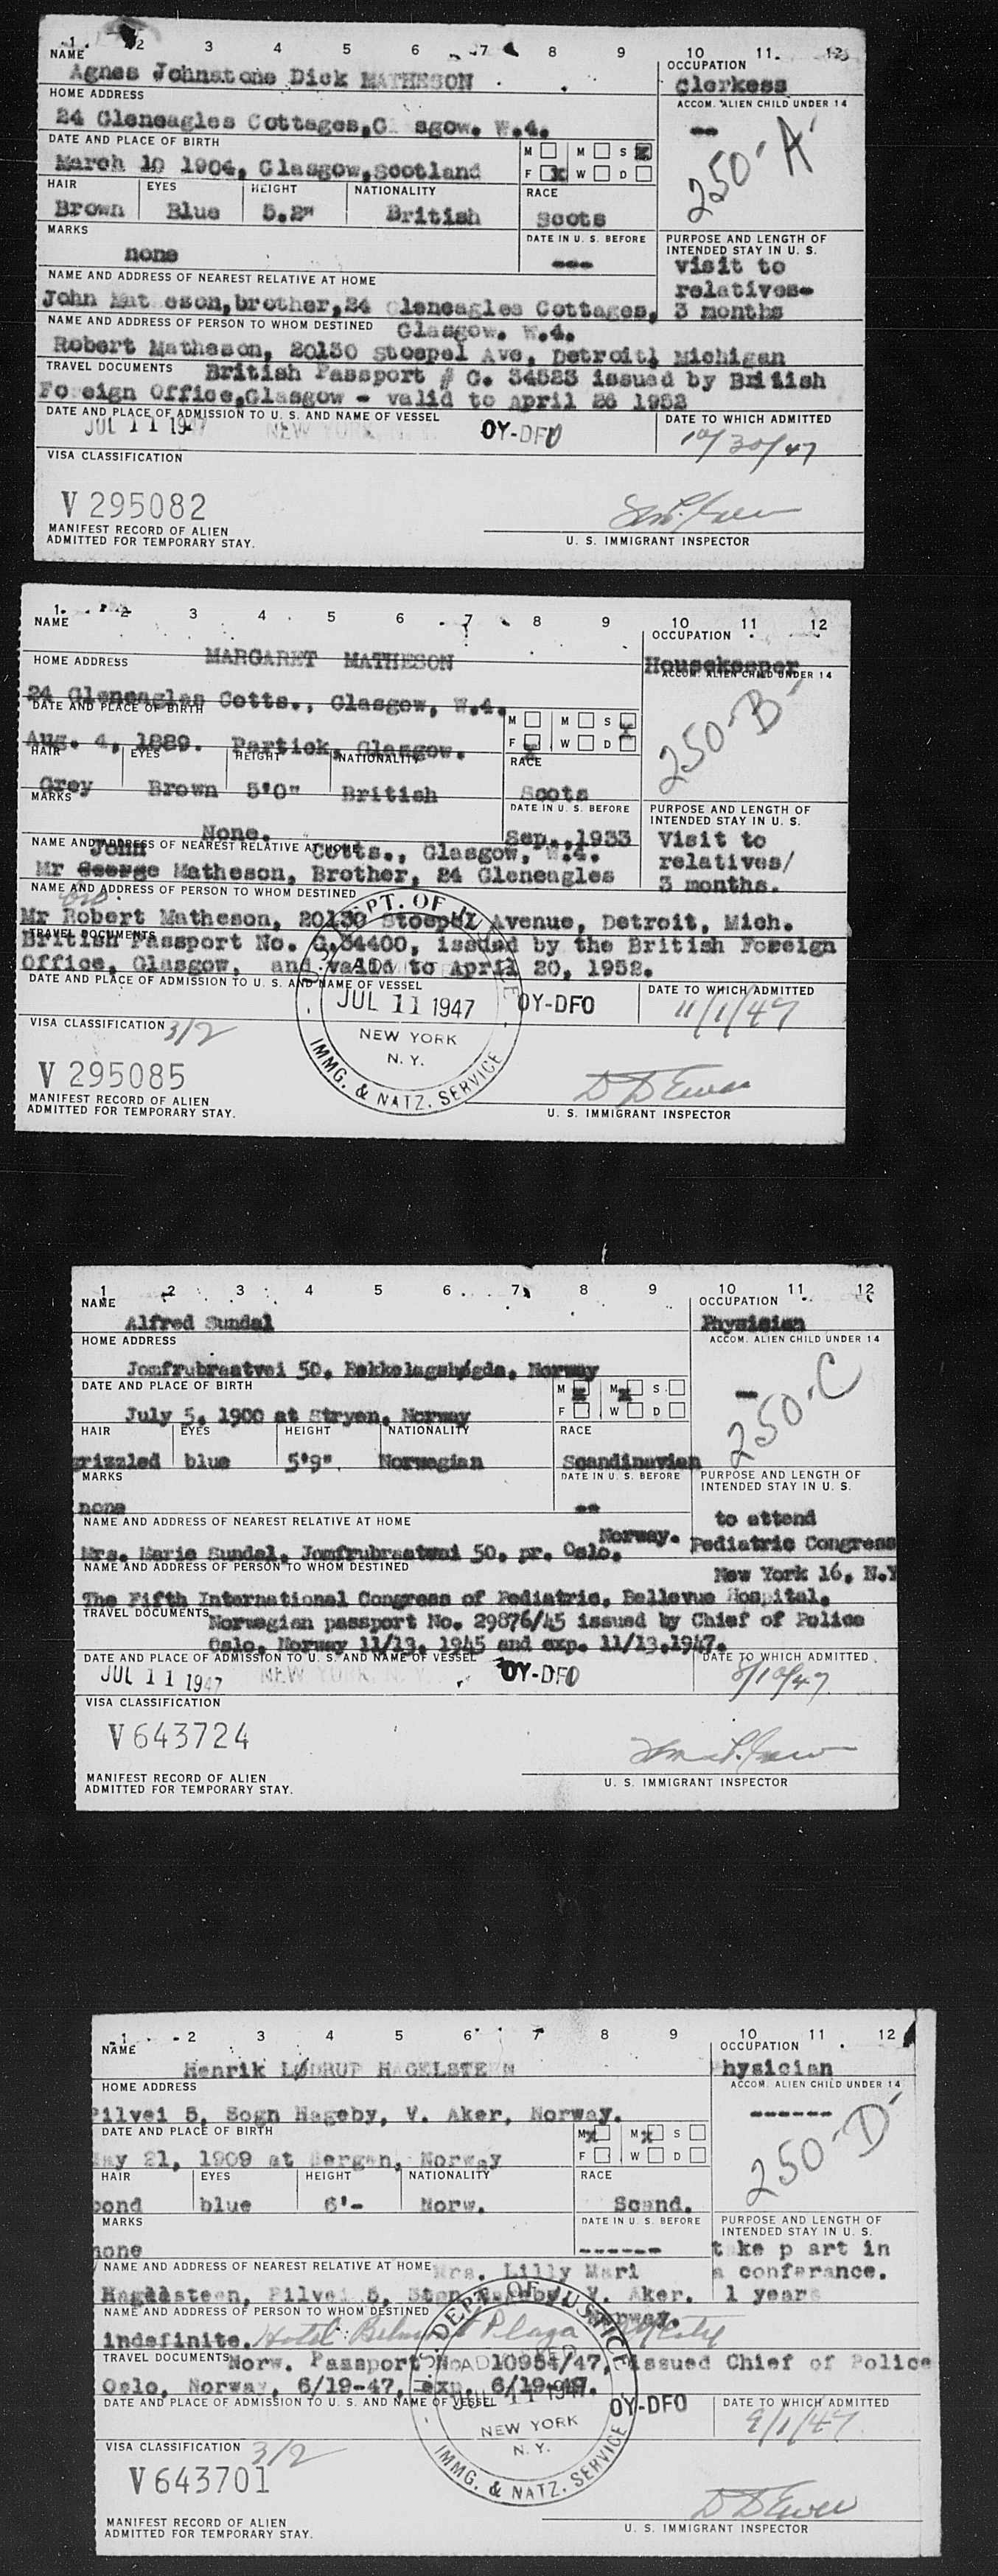 1 2 3 4 5 6 7 8 9 10 11 12
NAME OCCUPATION
Agnes Johnstone Dick MATHESON Clerkess
HOME ADDRESS ACCOM. ALIEN CHILD UNDER 14
24 Gleneagles Cottages, Glasgow. W.4. --
DATE AND PLACE OF BIRTH M M S
March 10 1904, Glasgow, Scotland F X W D 250-A
HAIR EYES HEIGHT NATIONALITY RACE
Brown Blue 5.2" British Scots
MARKS DATE IN U. S. BEFORE PURPOSE AND LENGTH OF INTENDED STAY IN U. S.
none --- visit to
NAME AND ADDRESS OF NEAREST RELATIVE AT HOME relatives-
John Mat eson, brother, 24 Gleneagles Cottages, 3 months
NAME AND ADDRESS OF PERSON TO WHOM DESTINED Glasgow. W.4.
Robert Matheson, 20130 Stoepel Ave, Detroit, Michigan
TRAVEL DOCUMENTS British Passport # G. 34523 issued by British
Foreign Office, Glasgow - valid to April 26 1952
DATE AND PLACE OF ADMISSION TO U. S. AND NAME OF VESSEL DATE TO WHICH ADMITTED
JUL 11 1947 NEW YORK, N. Y. OY-DFO 10/30/47
VISA CLASSIFICATION
V 295082
MANIFEST RECORD OF ALIEN
ADMITTED FOR TEMPORARY STAY. U. S. IMMIGRANT INSPECTOR
1 2 3 4 5 6 7 8 9 10 11 12
NAME OCCUPATION
HOME ADDRESS MARGARET MATHESON Housekeeper
ACCOM. ALIEN CHILD UNDER 14
24 Gleneagles Cotts., Glasgow, W.4.
DATE AND PLACE OF BIRTH M M S X
Aug. 4, 1889. Partick, Glasgow. F X W D 250-B
HAIR EYES HEIGHT NATIONALITY RACE
Grey Brown 5'0" British Scots
MARKS DATE IN U. S. BEFORE PURPOSE AND LENGTH OF INTENDED STAY IN U. S.
None. Sep., 1933 Visit to
NAME AND ADDRESS OF NEAREST RELATIVE AT HOME
John Cotts., Glasgow, W.4. relatives/
Mr George Matheson, Brother, 24 Gleneagles 3 months.
NAME AND ADDRESS OF PERSON TO WHOM DESTINED
Mr Robert Matheson, 20130 Stoepel Avenue, Detroit, Mich.
TRAVEL DOCUMENTS
British Passport No. G.34400, issued by the British Foreign
Office, Glasgow, and valid to April 20, 1952.
DATE AND PLACE OF ADMISSION TO U. S. AND NAME OF VESSEL DATE TO WHICH ADMITTED
DEPT. OF JUSTICE ADMITTED JUL 11 1947 NEW YORK N. Y. IMMG. & NATZ. SERVICE OY-DFO 11/1/47
VISA CLASSIFICATION 3/2
V 295085
MANIFEST RECORD OF ALIEN
ADMITTED FOR TEMPORARY STAY. U. S. IMMIGRANT INSPECTOR
1 2 3 4 5 6 7 8 9 10 11 12
NAME OCCUPATION
Alfred Sundal Physician
HOME ADDRESS ACCOM. ALIEN CHILD UNDER 14
Jomfrubraatvei 50, Bekkelagshøgda, Norway --
DATE AND PLACE OF BIRTH M X M X S
July 5. 1900 at Stryen, Norway F W D 250-C
HAIR EYES HEIGHT NATIONALITY RACE
grizzled blue 5'9". Norwegian Scandinavian
MARKS DATE IN U. S. BEFORE PURPOSE AND LENGTH OF INTENDED STAY IN U. S.
none -- to attend
NAME AND ADDRESS OF NEAREST RELATIVE AT HOME
Norway. Pediatric Congress
Mrs. Marie Sundal, Jomfrubraatvei 50, pr. Oslo,
NAME AND ADDRESS OF PERSON TO WHOM DESTINED New York 16, N.Y
The Fifth International Congress of Pediatric, Bellevue Hospital,
TRAVEL DOCUMENTS Norwegian passport No. 29876/45 issued by Chief of Police
Oslo, Norway 11/13. 1945 and exp. 11/13.1947.
DATE AND PLACE OF ADMISSION TO U. S. AND NAME OF VESSEL DATE TO WHICH ADMITTED
JUL 11 1947 NEW YORK, N. Y. OY-DFO 8/10/47
VISA CLASSIFICATION
V 643724
MANIFEST RECORD OF ALIEN
ADMITTED FOR TEMPORARY STAY. U. S. IMMIGRANT INSPECTOR
1 2 3 4 5 6 7 8 9 10 11 12
NAME OCCUPATION
Henrik LØDRUP HAGELSTEEN Physician
HOME ADDRESS ACCOM. ALIEN CHILD UNDER 14
Pilvei 5, Sogn Hageby, V. Aker, Norway. ------
DATE AND PLACE OF BIRTH M X M X S
May 21, 1909 at Bergen, Norway F W D 250-D
HAIR EYES HEIGHT NATIONALITY RACE
ond blue 6'- Norw. Scand.
MARKS DATE IN U. S. BEFORE PURPOSE AND LENGTH OF INTENDED STAY IN U. S.
none ------ take p art in
NAME AND ADDRESS OF NEAREST RELATIVE AT HOME Mrs. Lilly Mari a conference.
Hagelsteen, Pilvei 5, Sogn Hageby, V. Aker. 1 year
NAME AND ADDRESS OF PERSON TO WHOM DESTINED Norway.
indefinite. Hotel Belmont Plaza NYCity
TRAVEL DOCUMENTS Norw. Passport No. 10954/47, issued Chief of Police
Oslo, Norway, 6/19-47, exp. 6/19-49.
DATE AND PLACE OF ADMISSION TO U. S. AND NAME OF VESSEL DATE TO WHICH ADMITTED
DEPT. OF JUSTICE ADMITTED JUL 11 1947 NEW YORK N. Y. IMMG. & NATZ. SERVICE OY-DFO 9/1/47
VISA CLASSIFICATION 3/2
V 643701
MANIFEST RECORD OF ALIEN
ADMITTED FOR TEMPORARY STAY. U. S. IMMIGRANT INSPECTOR